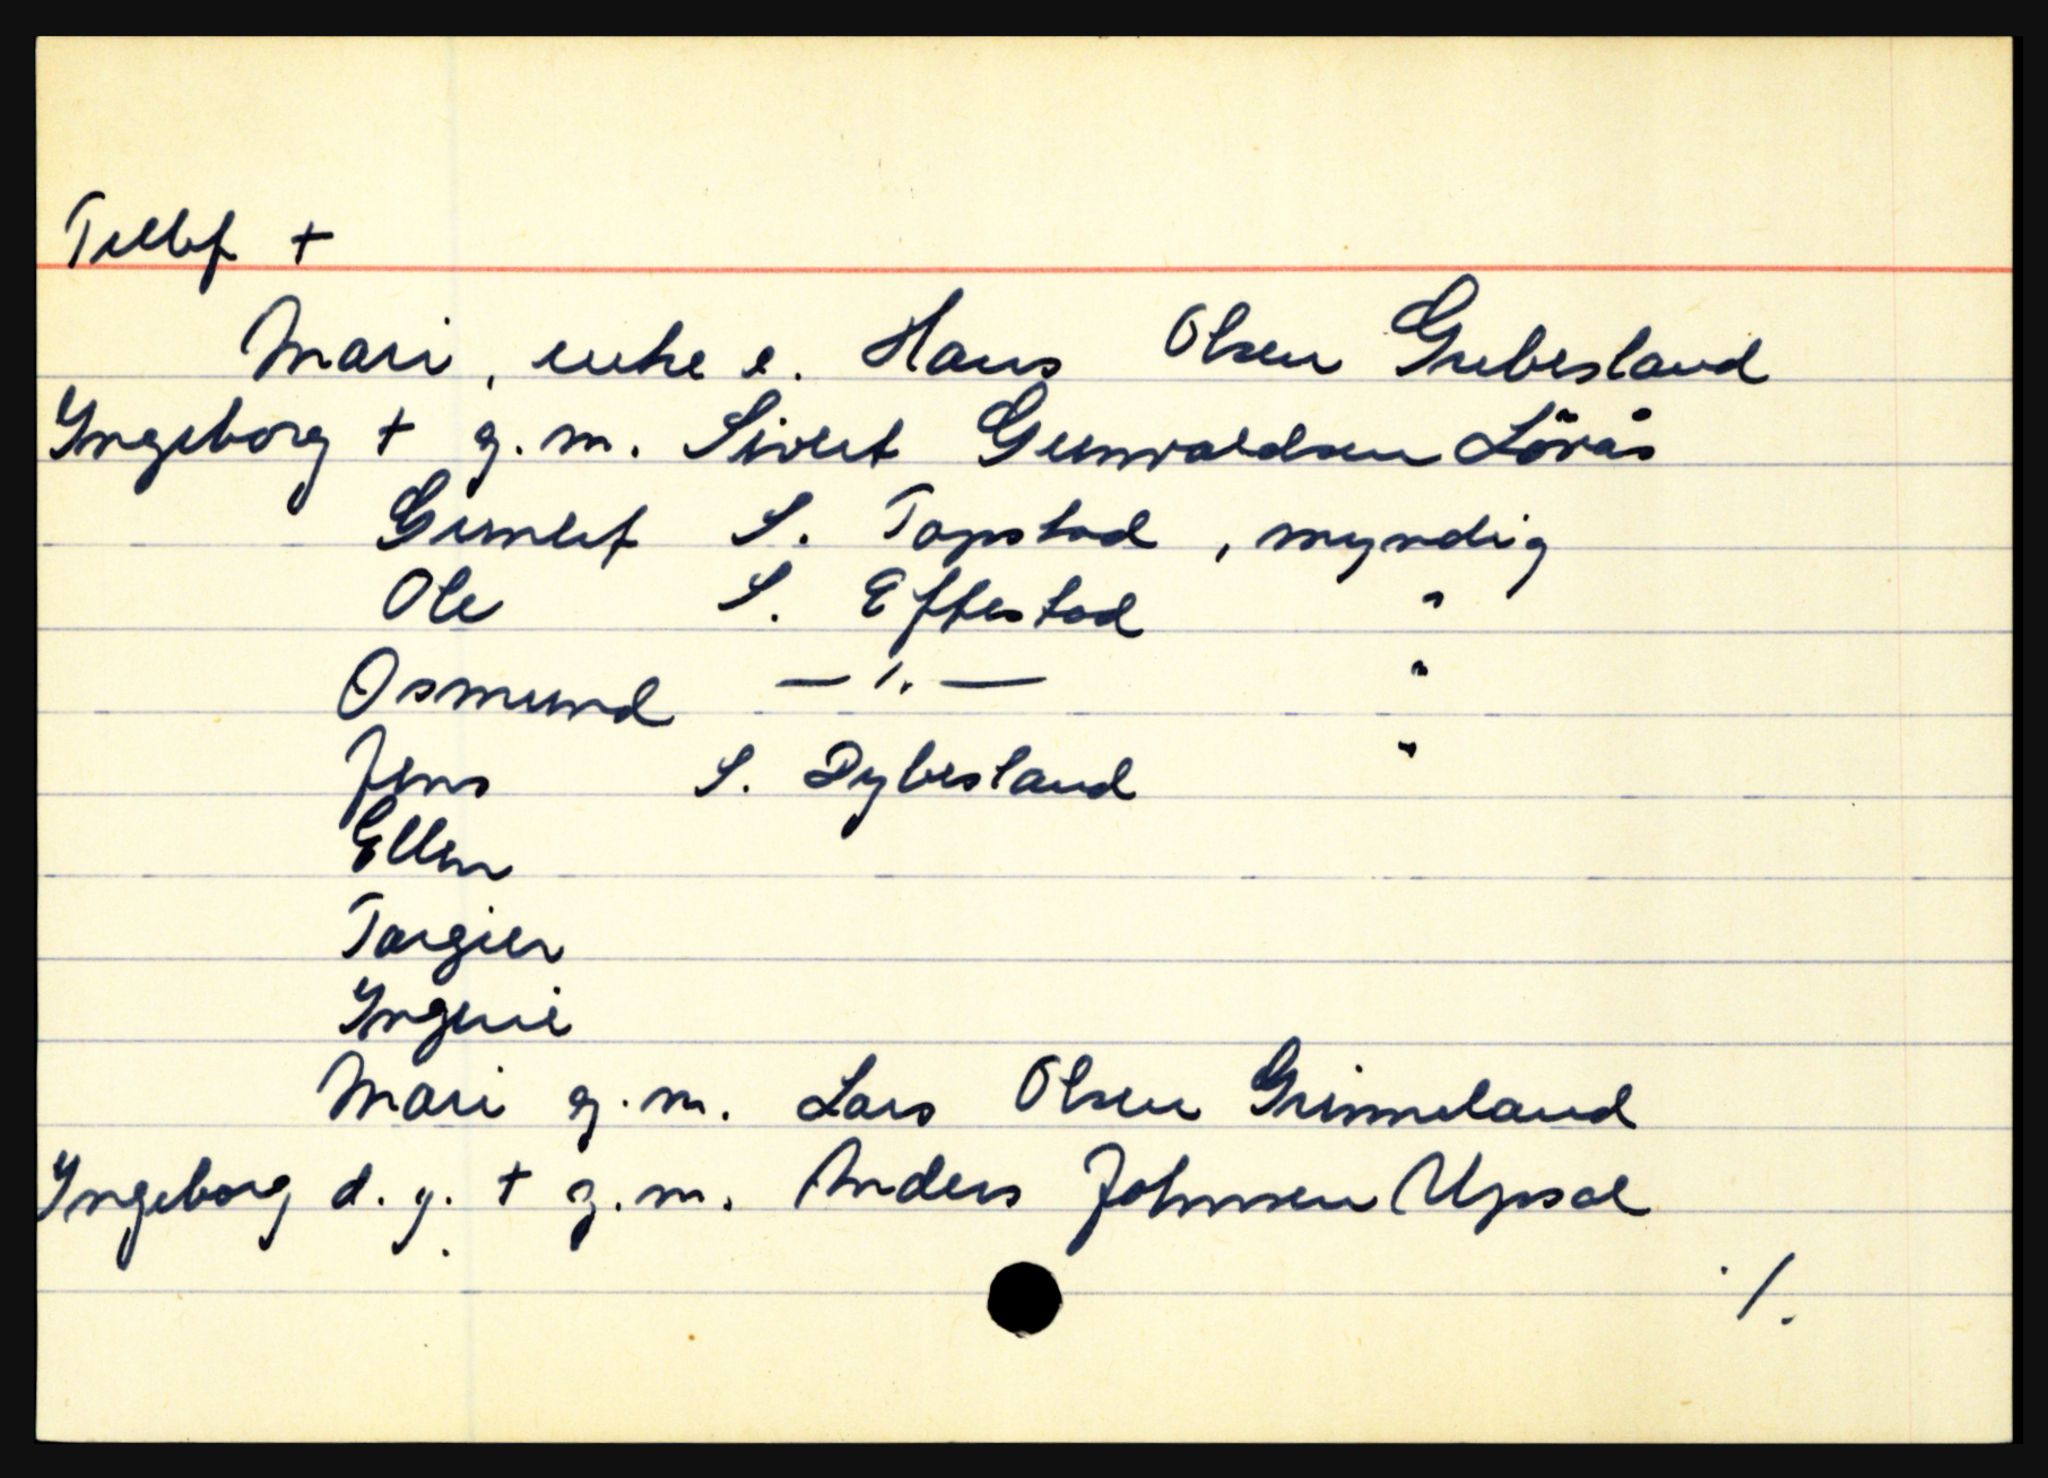 Tellef +
Mari, enke e. Hans Olsen Grebesland
Yngeborg + g.m. Sivert Gunvaldsen Lörås
Gunlef S. Topstad, myndig
Ole S. Eftestad "
Osmund —〃— "
Jens S. Dybesland "
Ellen
Torgier
Yngerie
Mari g.m. Lars Olsen Grimmeland
Yngeborg d.y. + g.m. Anders Johnsen Upsal
./.